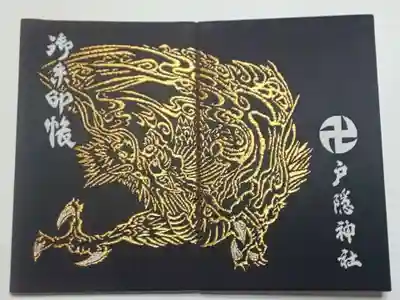 卍
戸隠神社
御朱印帳